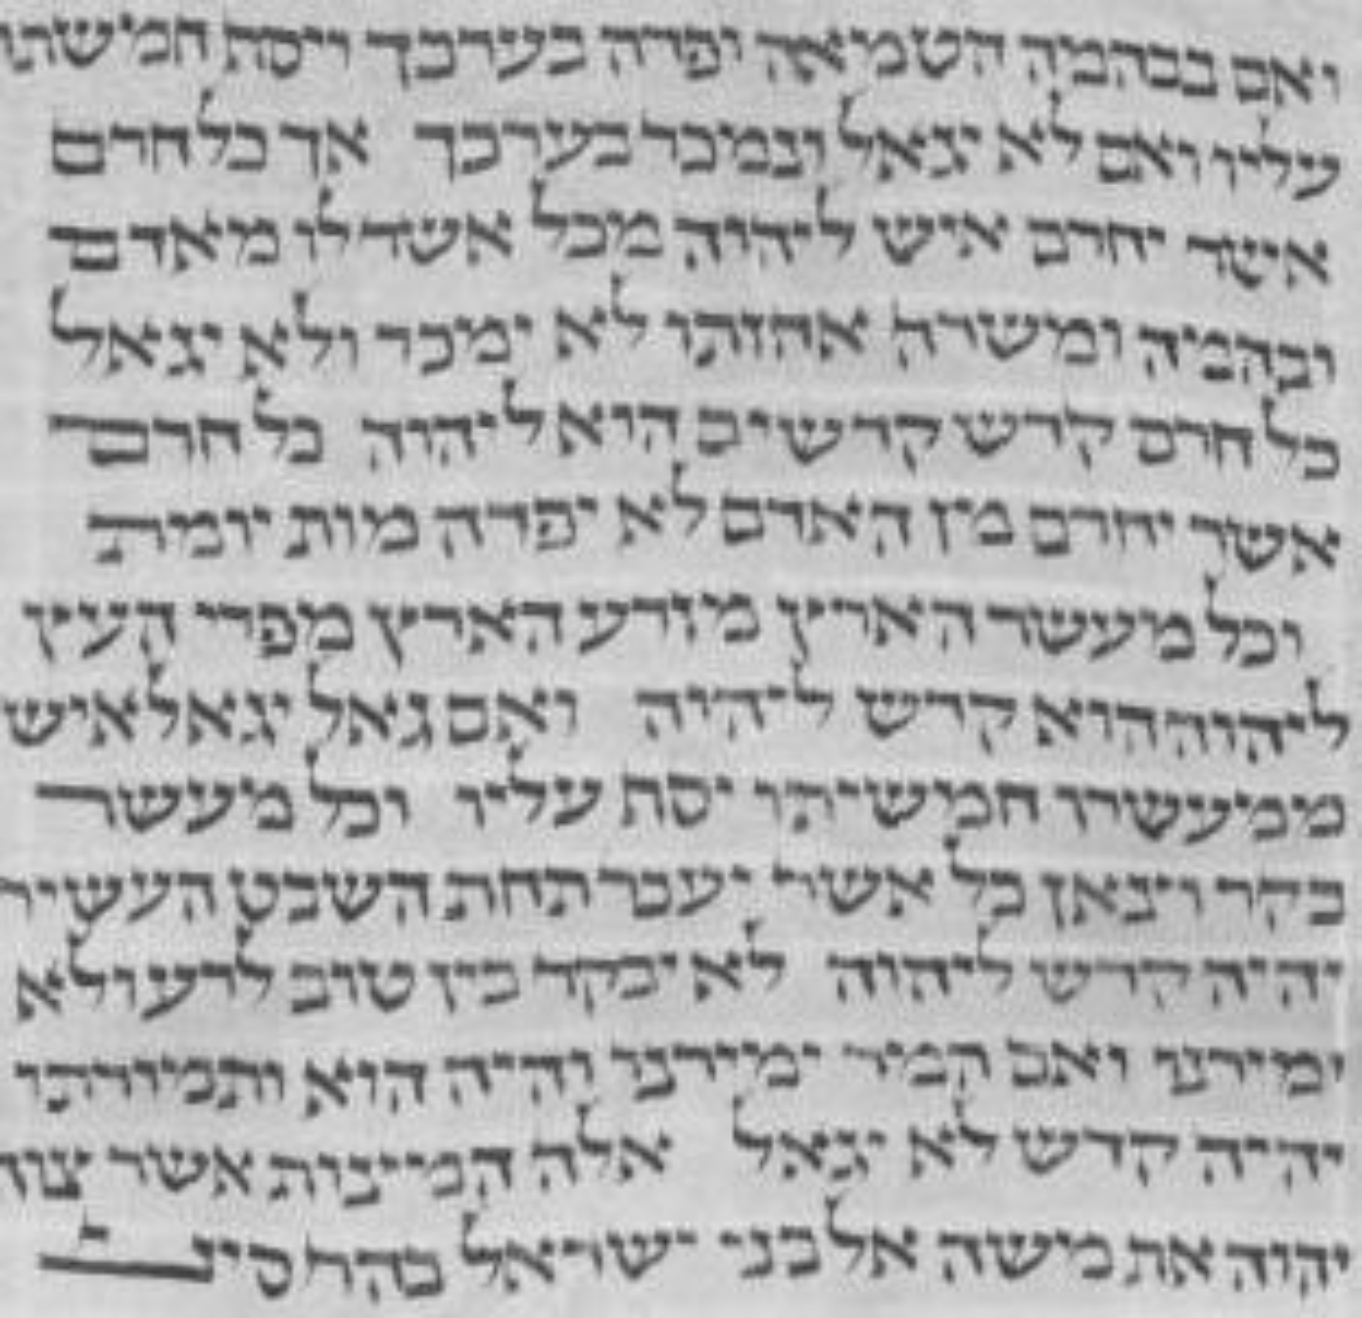 ואם בבהמה הטמאה ופדה בערכך ויסף חמישתו
עליו ואם לא יגאל ונמכר בערכך אך כל חרם
אשר יחרם איש ליהוה מכל אשר לו מאדם
ובהמה ומשדה אחזתו לא ימכר ולא יגאל
כל חרם קדש קדשים הוא ליהוה כל חרם
אשר יחרם מן האדם לא יפדה מות יומת
וכל מעשר הארץ מזרע הארץ מפרי העץ
ליהוה הוא קדש ליהוה ואם גאל יגאל איש
ממעשרו חמשיתו יסף עליו וכל מעשר
בקר וצאן כל אשר יעבר תחת השבט העשירי
יהיה קדש ליהוה לא יבקר בין טוב לרע ולא
ימירנו ואם המר ימירנו והיה הוא ותמורתו
יהיה קדש לא יגאל אלה המצות אשר צוה
יהוה את משה אל בני ישראל בהר סיני